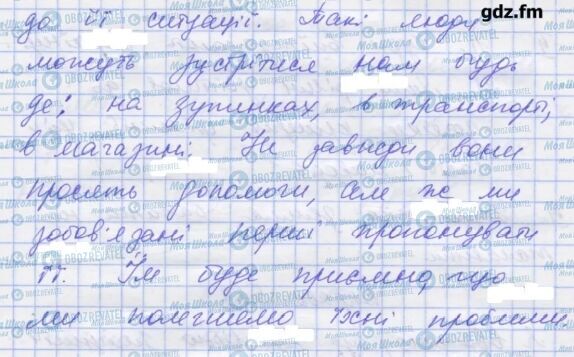 gdz.fm
до її ситуації. Такі люди
можуть зустрітися нам будь
де: на зупинках, в транспорті,
в магазині. Не завжди вони
просять допомоги, але ж ми
зобов'язані перші пропонувати
її. Їм буде приємно, що
ми полегшимо їхні проблеми